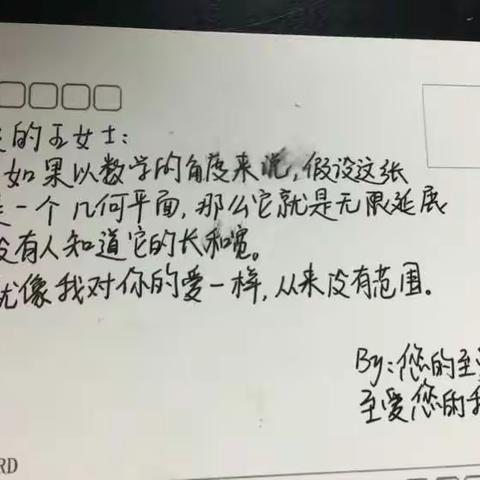 的王女士:
如果以数学的角度来说,假设这张
是一个几何平面,那么它就是无限延展
没有人知道它的长和宽。
就像我对你的爱一样,从来没有范围。
By:您的至
至爱您的我
RD